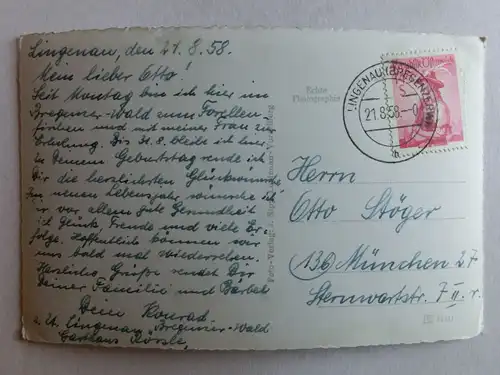 Lingenau, den 21.8.58.
Mein lieber Otto!
Seit Montag bin ich hier im
Bregenzer-Wald zum Forellen-
fischen und mit meiner Frau zur
Erholung. Bis 31.8. bleibe ich hier.
Zu Deinem Geburtstag sende ich
Dir die herzlichsten Glückwünsche
Im neuen Lebensjahr wünsche ich
Dir vor allem gute Gesundheit
Glück, Freude und viele Er-
folge. Hoffentlich können wir
uns bald mal wiedersehen.
Herzliche Grüße sendet Dir
Deiner Familie und Bärbel
Dein Konrad
z. Zt. Lingenau, Bregenzer-Wald
Gasthaus
Echte
Photographie
Foto-Verlag:
LINGENAU (BREGENZERW.)
21.8.58.--0
Herrn
Otto Stöger
(13b) München 27
Sternwartstr. 7 II r.